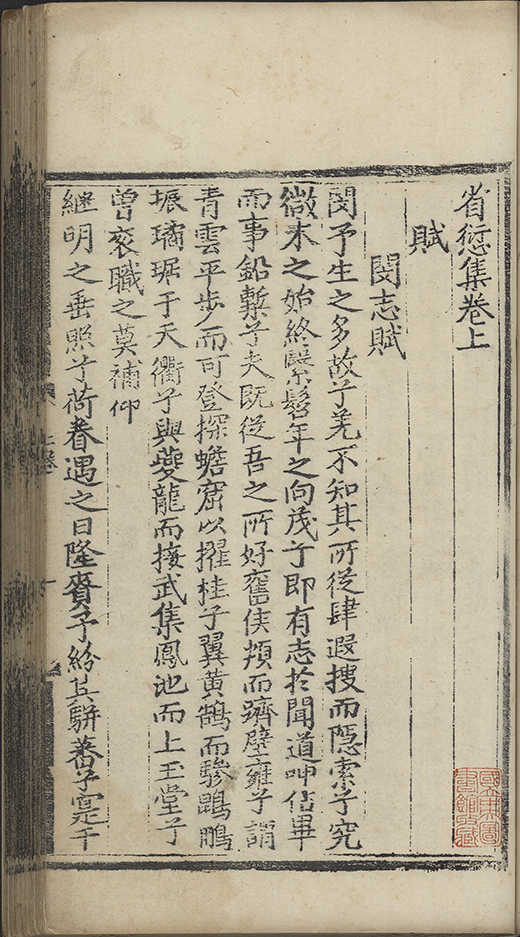 省愆集卷上
賦
閔志賦
閔予生之多故兮羌不知其所從肆遐搜而隠索兮究
微末之始終繄髫年之向茂兮即有志於聞道呻佔畢
而事鉛槧兮夫既從吾之所好奮侠頰而躋璧雍兮謂
青雲平步而可登探蟾窟以擢桂兮翼黄鵠而驂鵾鵬
振璚琚于天衢兮與夔龍而接武集鳳池而上玉堂兮
曽衮職之莫補仰
継明之垂照兮荷眷遇之日隆賚予給其駢蕃兮寔千
上卷
一
國立中央圖書館收藏